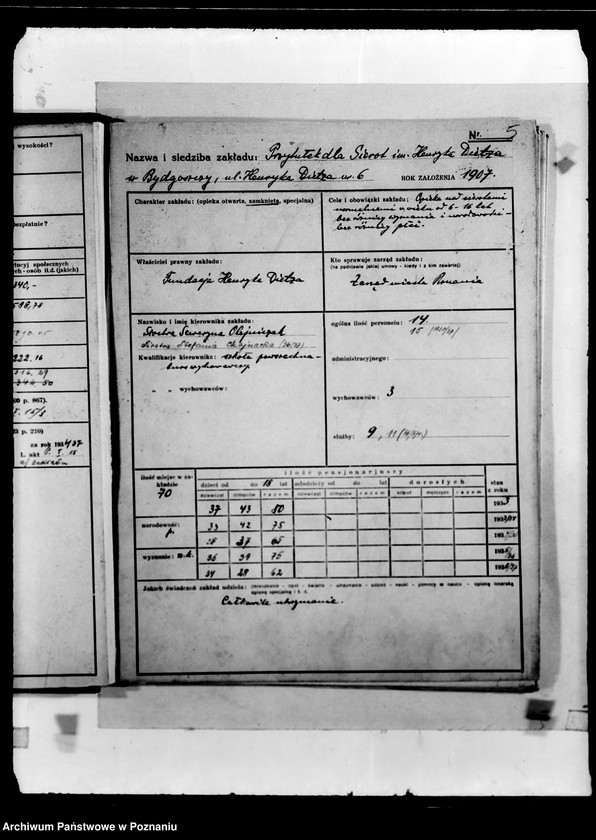 wysokości?
bezpłatnie?
tucyj społecznych
ch - osób it.d. (jakich)
340,-
598,78
222.16
316.29
344 50
00 p. 867).
3 p. 210)
za rok 1936/37
L. akt
Nr. 5
Nazwa i siedziba zakładu: Przytułek dla Sierot im. Henryka Dietza
w Bydgoszczy, ul. Henryka Dietza nr. 6 ROK ZAŁOŻENIA 1907.
Charakter zakładu: (opieka otwarta, zamknięta, specjalna)
Cele i obowiązki zakładu: Opieka nad sierotami
normalnemi w wieku od 6 - 16 lat,
bez różnicy wyznania i narodowości -
bez różnicy płci.
Właściciel prawny zakładu:
Fundacja Henryka Dietza
Kto sprawuje zarząd zakładu:
(na podstawie jakiej umowy - kiedy i z kim zawartej)
Zarząd miasta Poznania
Nazwisko i imię kierownika zakładu:
Siostra Seweryna Olejniczak
Siostra Stefania Chojnacka (36/37)
Kwalifikacje kierownika: szkoła powszechna -
kurs wychowawczy
" " wychowawców:
ogólna ilość personelu: 14
15
administracyjnego:
wychowawców: 3
służby: 9, 11
ilość miejsc w zakładzie
70
narodowość:
p.
wyznanie: rz.k.
ilość pensjonarjuszy
dzieci od do 18 lat młodzieży od do lat dorosłych stan z roku
dziewcząt chłopców razem dziewcząt chłopców razem kobiet mężczyzn razem
37 43 80 1933
33 42 75 193
28 37 65 193
36 39 75 193
34 28 62 193
Jakich świadczeń zakład udziela: (mieszkanie - opał - światło - utrzymanie - odzież - nauki - pomocy w nauce - opiekę lekarską
opiekę specjalną i t. d.
Całkowite utrzymanie.
Archiwum Państwowe w Poznaniu